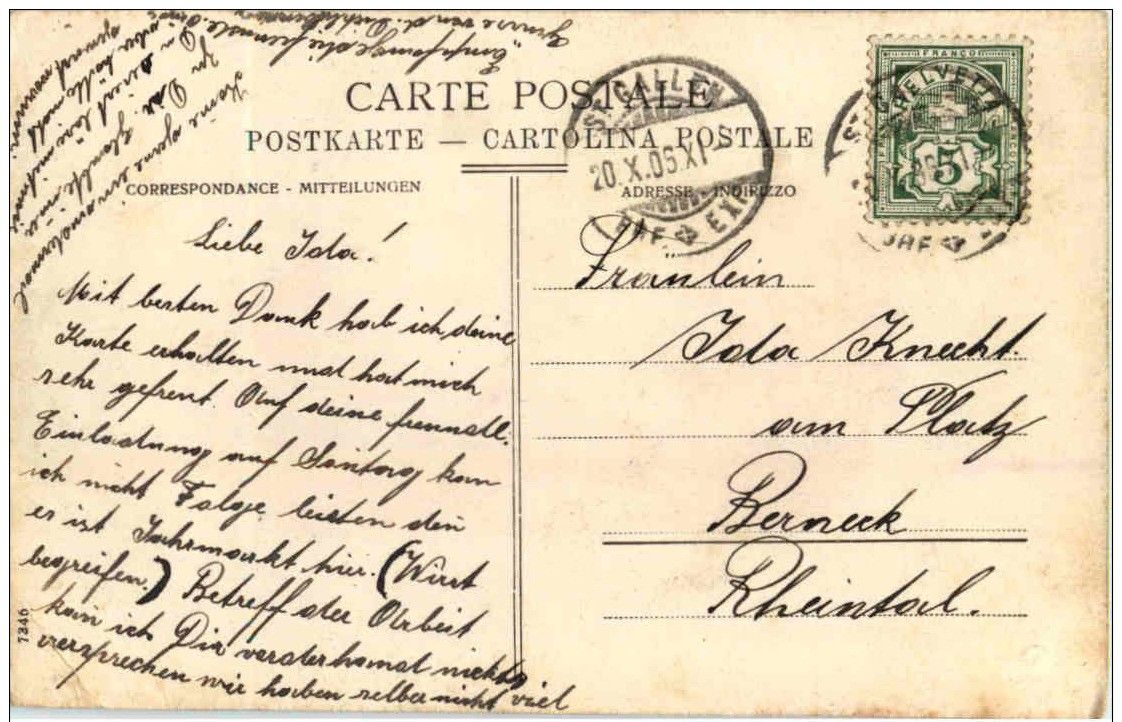 CARTE POSTALE
POSTKARTE — CARTOLINA POSTALE
CORRESPONDANCE - MITTEILUNGEN
ADRESSE - INDIRIZZO
FRANCO
HELVETIA
5
ST. GALLEN
20.X.06.XI-
BRF. EXP.
Liebe Ida!
Mit besten Dank hab ich deine
Karte erhalten und hat mich
sehr gefreut. Auf deine freundl.
Einladung auf Sontag kan
ich nicht Folge leisten den
es ist Jahrmarkt hier. (Wirst
begreifen.) Betreff der Arbeit
kan ich Dir vorderhamal nichts
versprechen wir haben selber nicht viel
7346
Fräulein
Ida Knecht.
am Platz
Berneck
Rheintal.